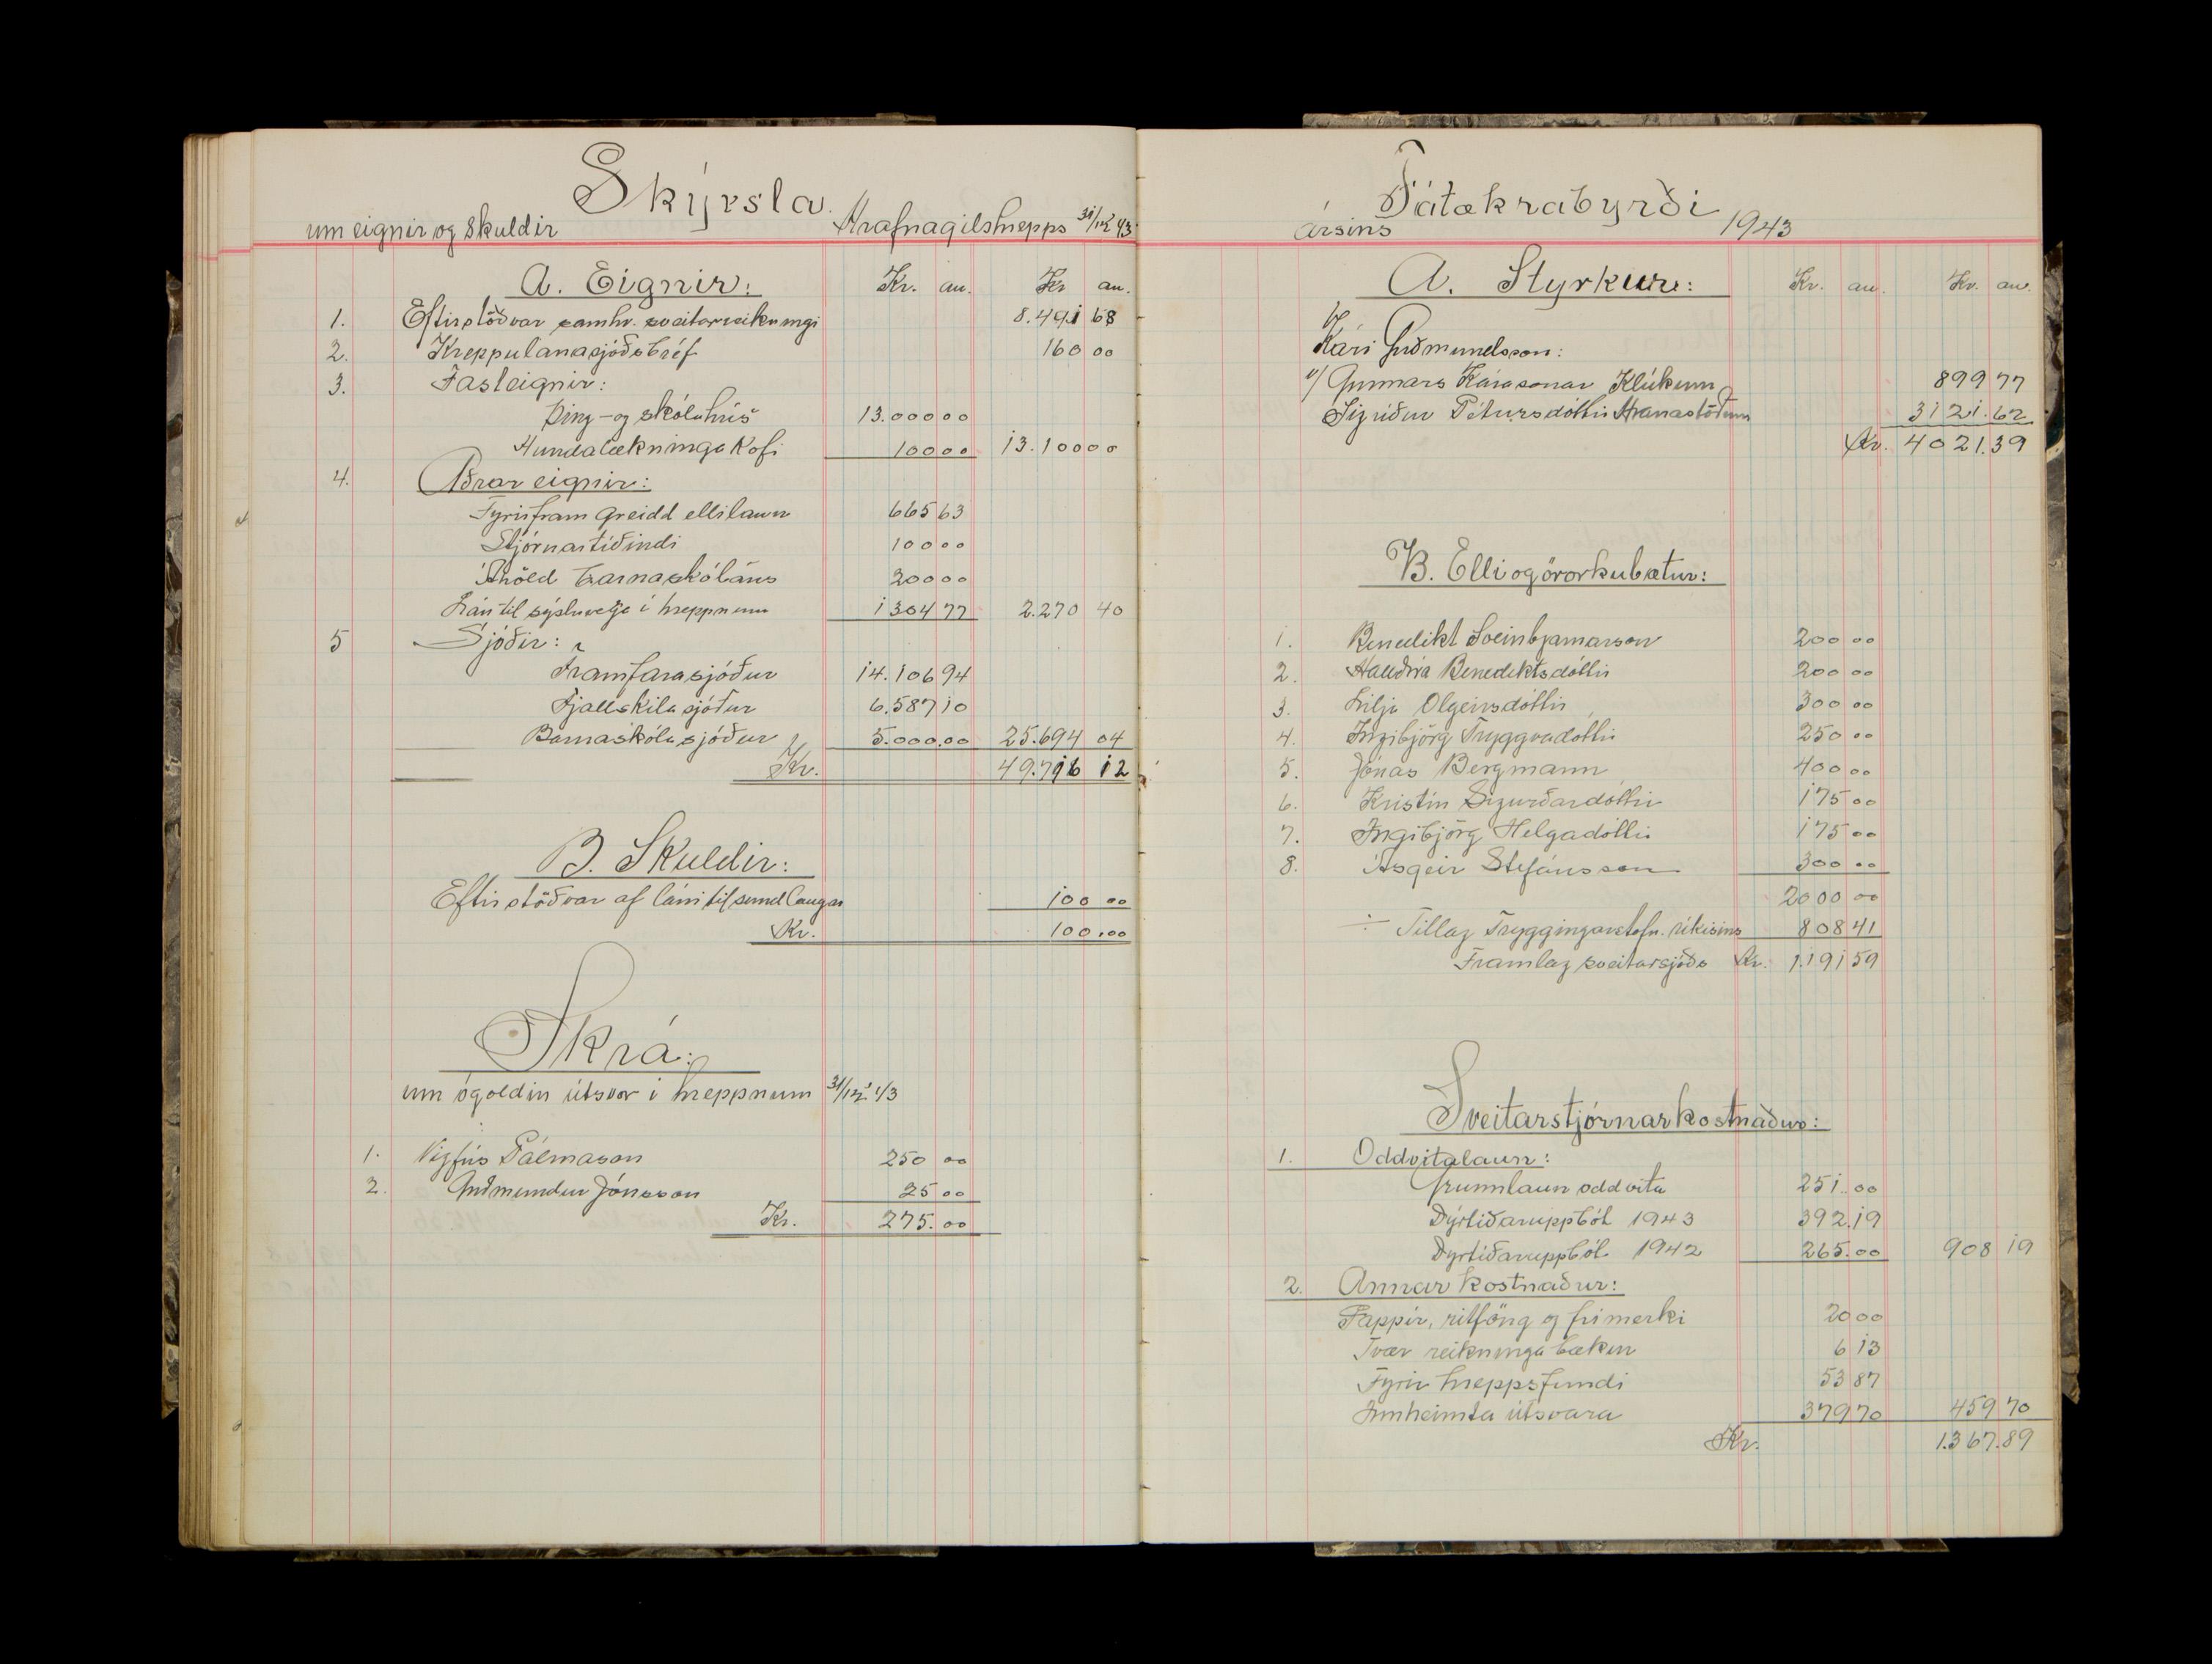 Skýrsla
um eignir og skuldir Hrafnagilshrepps 31/12 43
A. Eignir: Kr. au. Kr au.
1. Eftirstöðvar samkv. sveitarreikningi 8.491 68
2. Kreppulánasjóðsbréf 160 00
3. Fasteignir:
Þing-og skólahús 13.000 00
Hundalækningakofi 100 00 13.100 00
4. Aðrar eignir:
Fyrirfram greidd ellilaun 665 63
Stjórnartíðindi 100 00
Áhöld barnaskólans 200 00
Lán til sýsluvega í hreppnum 1304 77 2.270 40
5 Sjóðir:
Framfarasjóður 14.106 94
Fjallskilasjóður 6.587 10
Barnaskólasjóður 5.000.00 25.694 04
Kr. 49.716 12
B. Skuldir:
Eftirstöðvar af láni til sundlaugar 100 00
Kr. 100.00
Skrá:
um ógoldin útsvör í hreppnum 31/12 '43
1. Vigfús Pálmason 250 00
2. Guðmundur Jónsson 25 00
Kr. 275.00
Fátækrabyrði
ársins 1943
A. Styrkur: Kr. au. Kr. au.
Kári Guðmundsson:
v/ Gunnars Kárasonar Klúkum 899 77
Sigríður Pétursdóttir Hranastöðum 3121.62
Kr. 4021.39
B. Elli og örorkubætur:
1. Benedikt Sveinbjarnarson 200 00
2. Halldóra Benediktsdóttir 200 00
3. Lilja Olgeirsdóttir 300 00
4. Ingibjörg Tryggvadóttir 250 00
5. Jónas Bergmann 400 00
6. Kristín Sigurðardóttir 175 00
7. Ingibjörg Helgadóttir 175 00
8. Ásgeir Stefánsson 300 00
2000 00
÷ Tillag Tryggingarstofn. ríkisins 808 41
Framlag sveitarsjóðs Kr. 1.191 59
Sveitarstjórnarkostnaður:
1. Oddvitalaun:
Grunnlaun oddvita 251.00
Dýrtíðaruppbót 1943 392.19
Dýrtíðaruppbót 1942 265.00 908 19
2. Annar kostnaður:
Pappír, ritföng og frímerki 20 00
Tvær reikningabækur 6 13
Fyrir hreppsfundi 53 87
Innheimta útsvara 379 70 459 70
Kr. 1.367.89